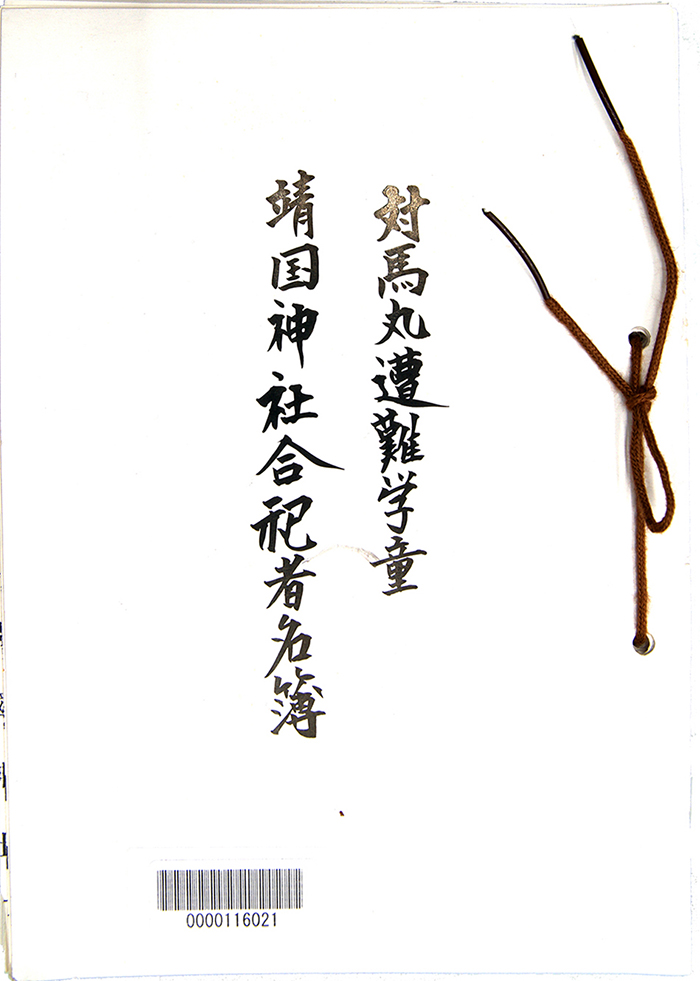 対馬丸遭難学童
靖国神社合祀者名簿
0000116021